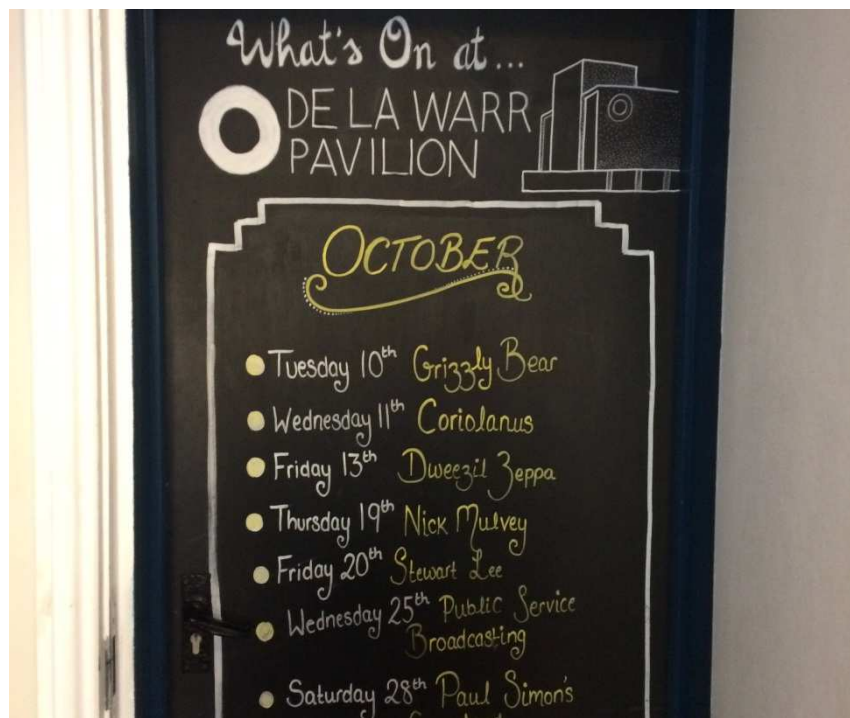 What's On at...
DE LA WARR
PAVILION
OCTOBER
Tuesday 10th Grizzly Bear
Wednesday 11th Coriolanus
Friday 13th Dweezil Zeppa
Thursday 19th Nick Mulvey
Friday 20th Stewart Lee
Wednesday 25th Public Service
Broadcasting
Saturday 28th Paul Simon's